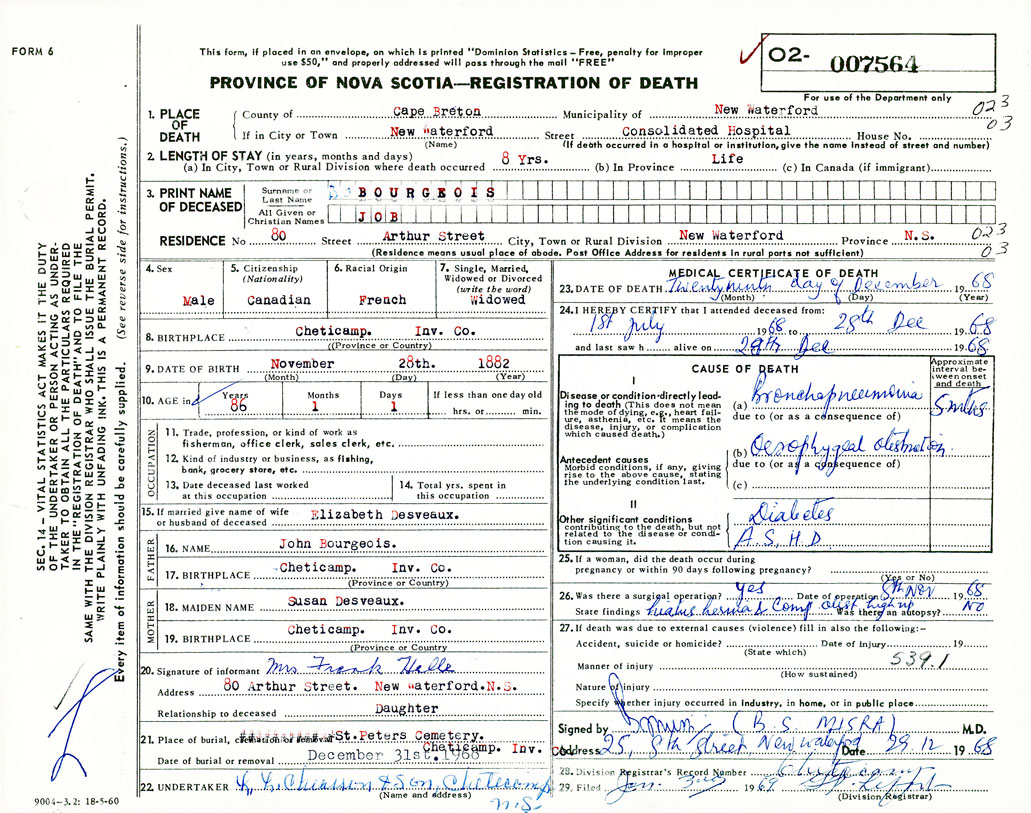 FORM 6
This form, if placed in an envelope, on which is printed "Dominion Statistics – Free, penalty for improper
use $50," and properly addressed will pass through the mail "FREE"
PROVINCE OF NOVA SCOTIA—REGISTRATION OF DEATH
✓ 02- 007564
For use of the Department only
023
03
1. PLACE OF DEATH
County of Cape Breton Municipality of New Waterford
If in City or Town New Waterford Street Consolidated Hospital House No.
(Name) (If death occurred in a hospital or institution, give the name instead of street and number)
2. LENGTH OF STAY (in years, months and days)
(a) In City, Town or Rural Division where death occurred 8 Yrs. (b) In Province Life (c) In Canada (if immigrant)
3. PRINT NAME OF DECEASED
Surname or Last Name BOURGEOIS
All Given or Christian Names JOB
RESIDENCE No 80 Street Arthur Street City, Town or Rural Division New Waterford Province N.S.
023
03
(Residence means usual place of abode. Post Office Address for residents in rural parts not sufficient)
4. Sex
Male
5. Citizenship (Nationality)
Canadian
6. Racial Origin
French
7. Single, Married, Widowed or Divorced (write the word)
Widowed
8. BIRTHPLACE Cheticamp. Inv. Co.
((Province or Country)
9. DATE OF BIRTH November 28th. 1882
(Month) (Day) (Year)
10. AGE in Years Months Days If less than one day old
86 1 1 hrs. or min.
OCCUPATION
11. Trade, profession, or kind of work as
fisherman, office clerk, sales clerk, etc.
12. Kind of industry or business, as fishing,
bank, grocery store, etc.
13. Date deceased last worked
at this occupation
14. Total yrs. spent in
this occupation
15. If married give name of wife
or husband of deceased Elizabeth Desveaux.
FATHER
16. NAME John Bourgeois.
17. BIRTHPLACE Cheticamp. Inv. Co.
(Province or Country)
MOTHER
18. MAIDEN NAME Susan Desveaux.
19. BIRTHPLACE Cheticamp. Inv. Co.
(Province or Country
20. Signature of informant Mrs Frank Halle
Address 80 Arthur Street. New Waterford.N.S.
Relationship to deceased Daughter
21. Place of burial, cremation or removal St.Peters Cemetery.
Cheticamp. Inv. Co
Date of burial or removal December 31st. 1968
22. UNDERTAKER Chiasson & Son Cheticamp
(Name and address)
N.S.
MEDICAL CERTIFICATE OF DEATH
23. DATE OF DEATH Twentyninth day of December 1968
(Month) (Day) (Year)
24. I HEREBY CERTIFY that I attended deceased from:
1st July 1968 to 28th Dec 1968
and last saw h alive on 29th Dec 1968
CAUSE OF DEATH
Approximate interval between onset and death
I
Disease or condition directly leading to death (This does not mean the mode of dying, e.g., heart failure, asthenia, etc. It means the disease, injury, or complication which caused death.)
(a) Bronchopneumonia 5 mths
due to (or as a consequence of)
Antecedent causes
Morbid conditions, if any, giving rise to the above cause, stating the underlying condition last.
(b) Oesophygeal obstruction
due to (or as a consequence of)
(c)
II
Other significant conditions
contributing to the death, but not related to the disease or condition causing it.
Diabetes
A.S.H.D.
25. If a woman, did the death occur during
pregnancy or within 90 days following pregnancy?
(Yes or No)
26. Was there a surgical operation? yes Date of operation 8th Nov 1968
State findings hiatus hernia & Comp obst high up Was there an autopsy? NO
27. If death was due to external causes (violence) fill in also the following:–
Accident, suicide or homicide? Date of injury 19
(State which)
539.1
Manner of injury
(How sustained)
Nature of injury
Specify whether injury occurred in industry, in home, or in public place
Signed by (B. S. MISRA) M.D.
Address 25, 8th Street New Waterford Date 29.12 1968
28. Division Registrar's Record Number Cheticamp
29. Filed Jan. 1969
(Division Registrar)
SEC. 14 – VITAL STATISTICS ACT MAKES IT THE DUTY
OF THE UNDERTAKER OR PERSON ACTING AS UNDER-
TAKER TO OBTAIN ALL THE PARTICULARS REQUIRED
IN THE "REGISTRATION OF DEATH" AND TO FILE THE
SAME WITH THE DIVISION REGISTRAR WHO SHALL ISSUE THE BURIAL PERMIT.
WRITE PLAINLY WITH UNFADING INK. THIS IS A PERMANENT RECORD.
Every item of information should be carefully supplied. (See reverse side for instructions.)
9004–3.2: 18-5-60